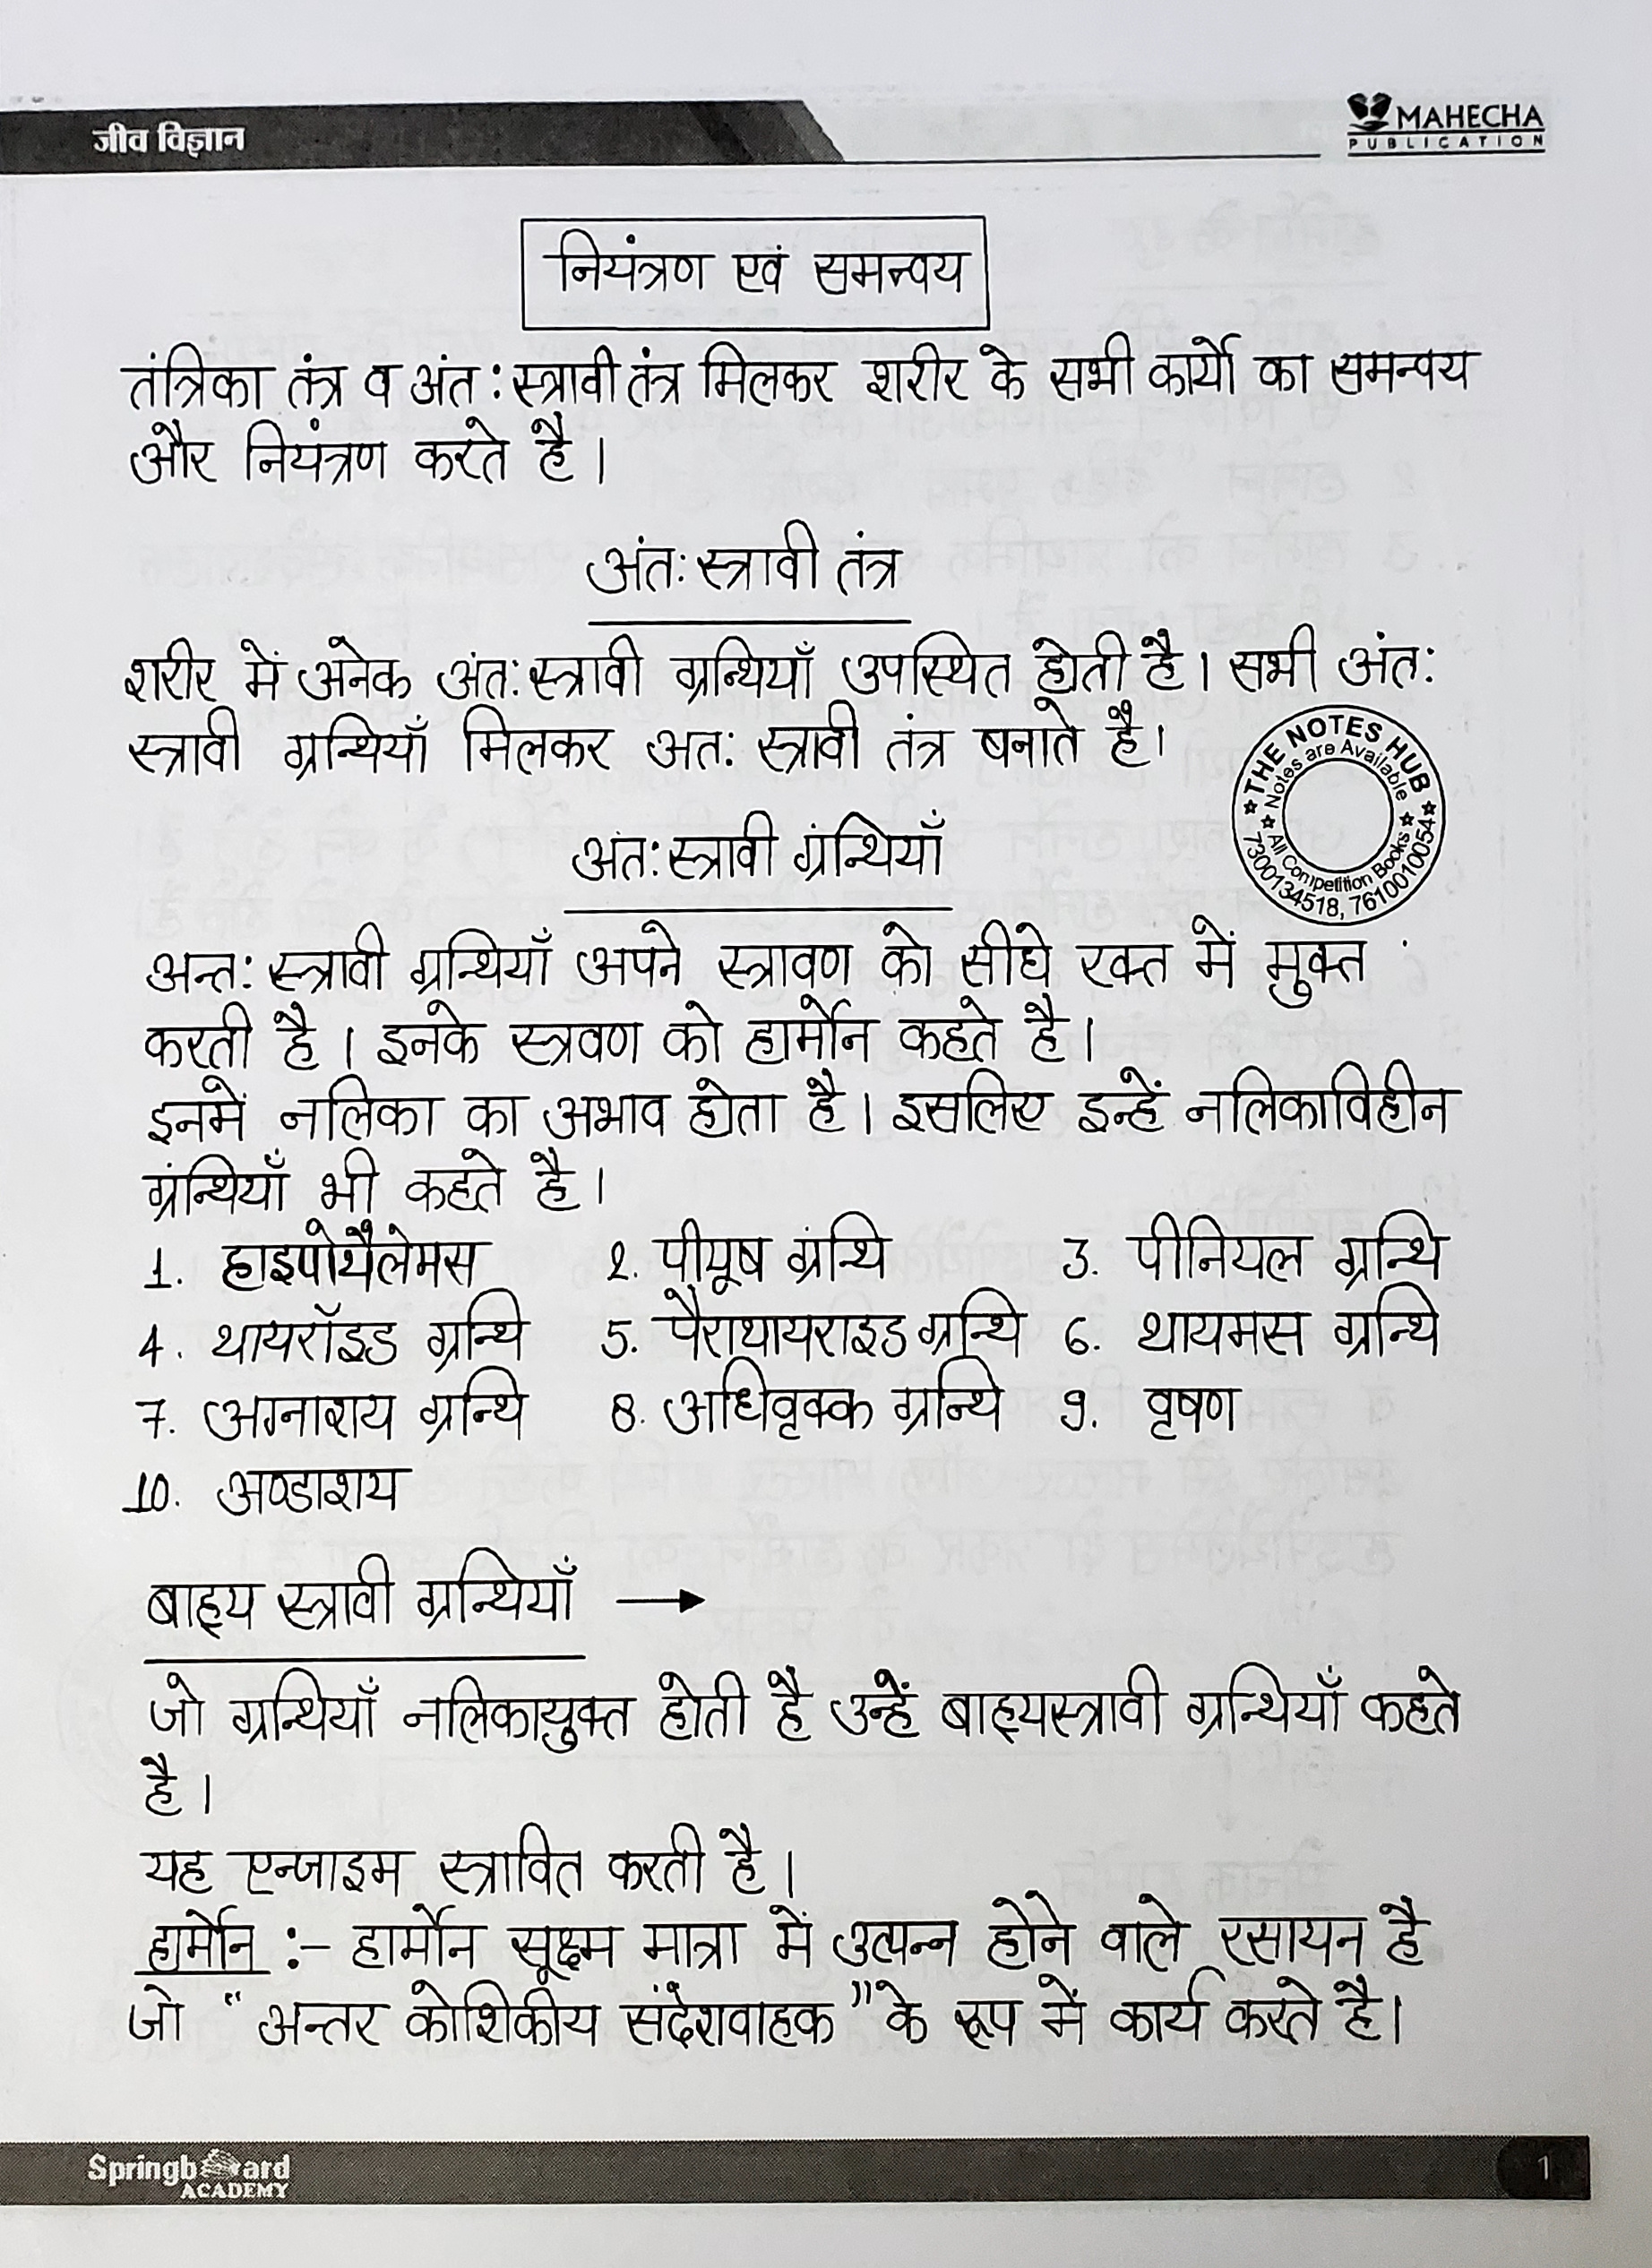 जीव विज्ञान
MAHECHA
PUBLICATION
नियंत्रण एवं समन्वय
तंत्रिका तंत्र व अंत: स्त्रावी तंत्र मिलकर शरीर के सभी कार्यो का समन्वय
और नियंत्रण करते है।
अंत: स्त्रावी तंत्र
शरीर में अनेक अंत: स्त्रावी ग्रन्थियाँ उपस्थित होती है। सभी अंत:
स्त्रावी ग्रन्थियाँ मिलकर अत: स्त्रावी तंत्र बनाते है।
THE NOTES HUB
Notes are Available
All Competition Books
7300134518, 7610010054
अंत: स्त्रावी ग्रंन्थियाँ
अन्त: स्त्रावी ग्रन्थियाँ अपने स्त्रावण को सीधे रक्त में मुक्त
करती है। इनके स्त्रवण को हार्मोन कहते है।
इनमें नलिका का अभाव होता है। इसलिए इन्हें नलिकाविहीन
ग्रंन्थियाँ भी कहते है।
1. हाइपोथैलेमस 2. पीयूष ग्रन्थि 3. पीनियल ग्रन्थि
4. थायरॉइड ग्रन्थि 5. पैराथायराइड ग्रन्थि 6. थायमस ग्रन्थि
7. अग्नाशय ग्रन्थि 8. अधिवृक्क ग्रन्थि 9. वृषण
10. अण्डाशय
बाह्य स्त्रावी ग्रन्थियाँ →
जो ग्रन्थियाँ नलिकायुक्त होती है उन्हें बाह्यस्त्रावी ग्रन्थियाँ कहते
है।
यह एन्जाइम स्त्रावित करती है।
हार्मोन :- हार्मोन सूक्ष्म मात्रा में उत्पन्न होने वाले रसायन है
जो "अन्तर कोशिकीय संदेशवाहक" के रूप में कार्य करते है।
Springboard
ACADEMY
1